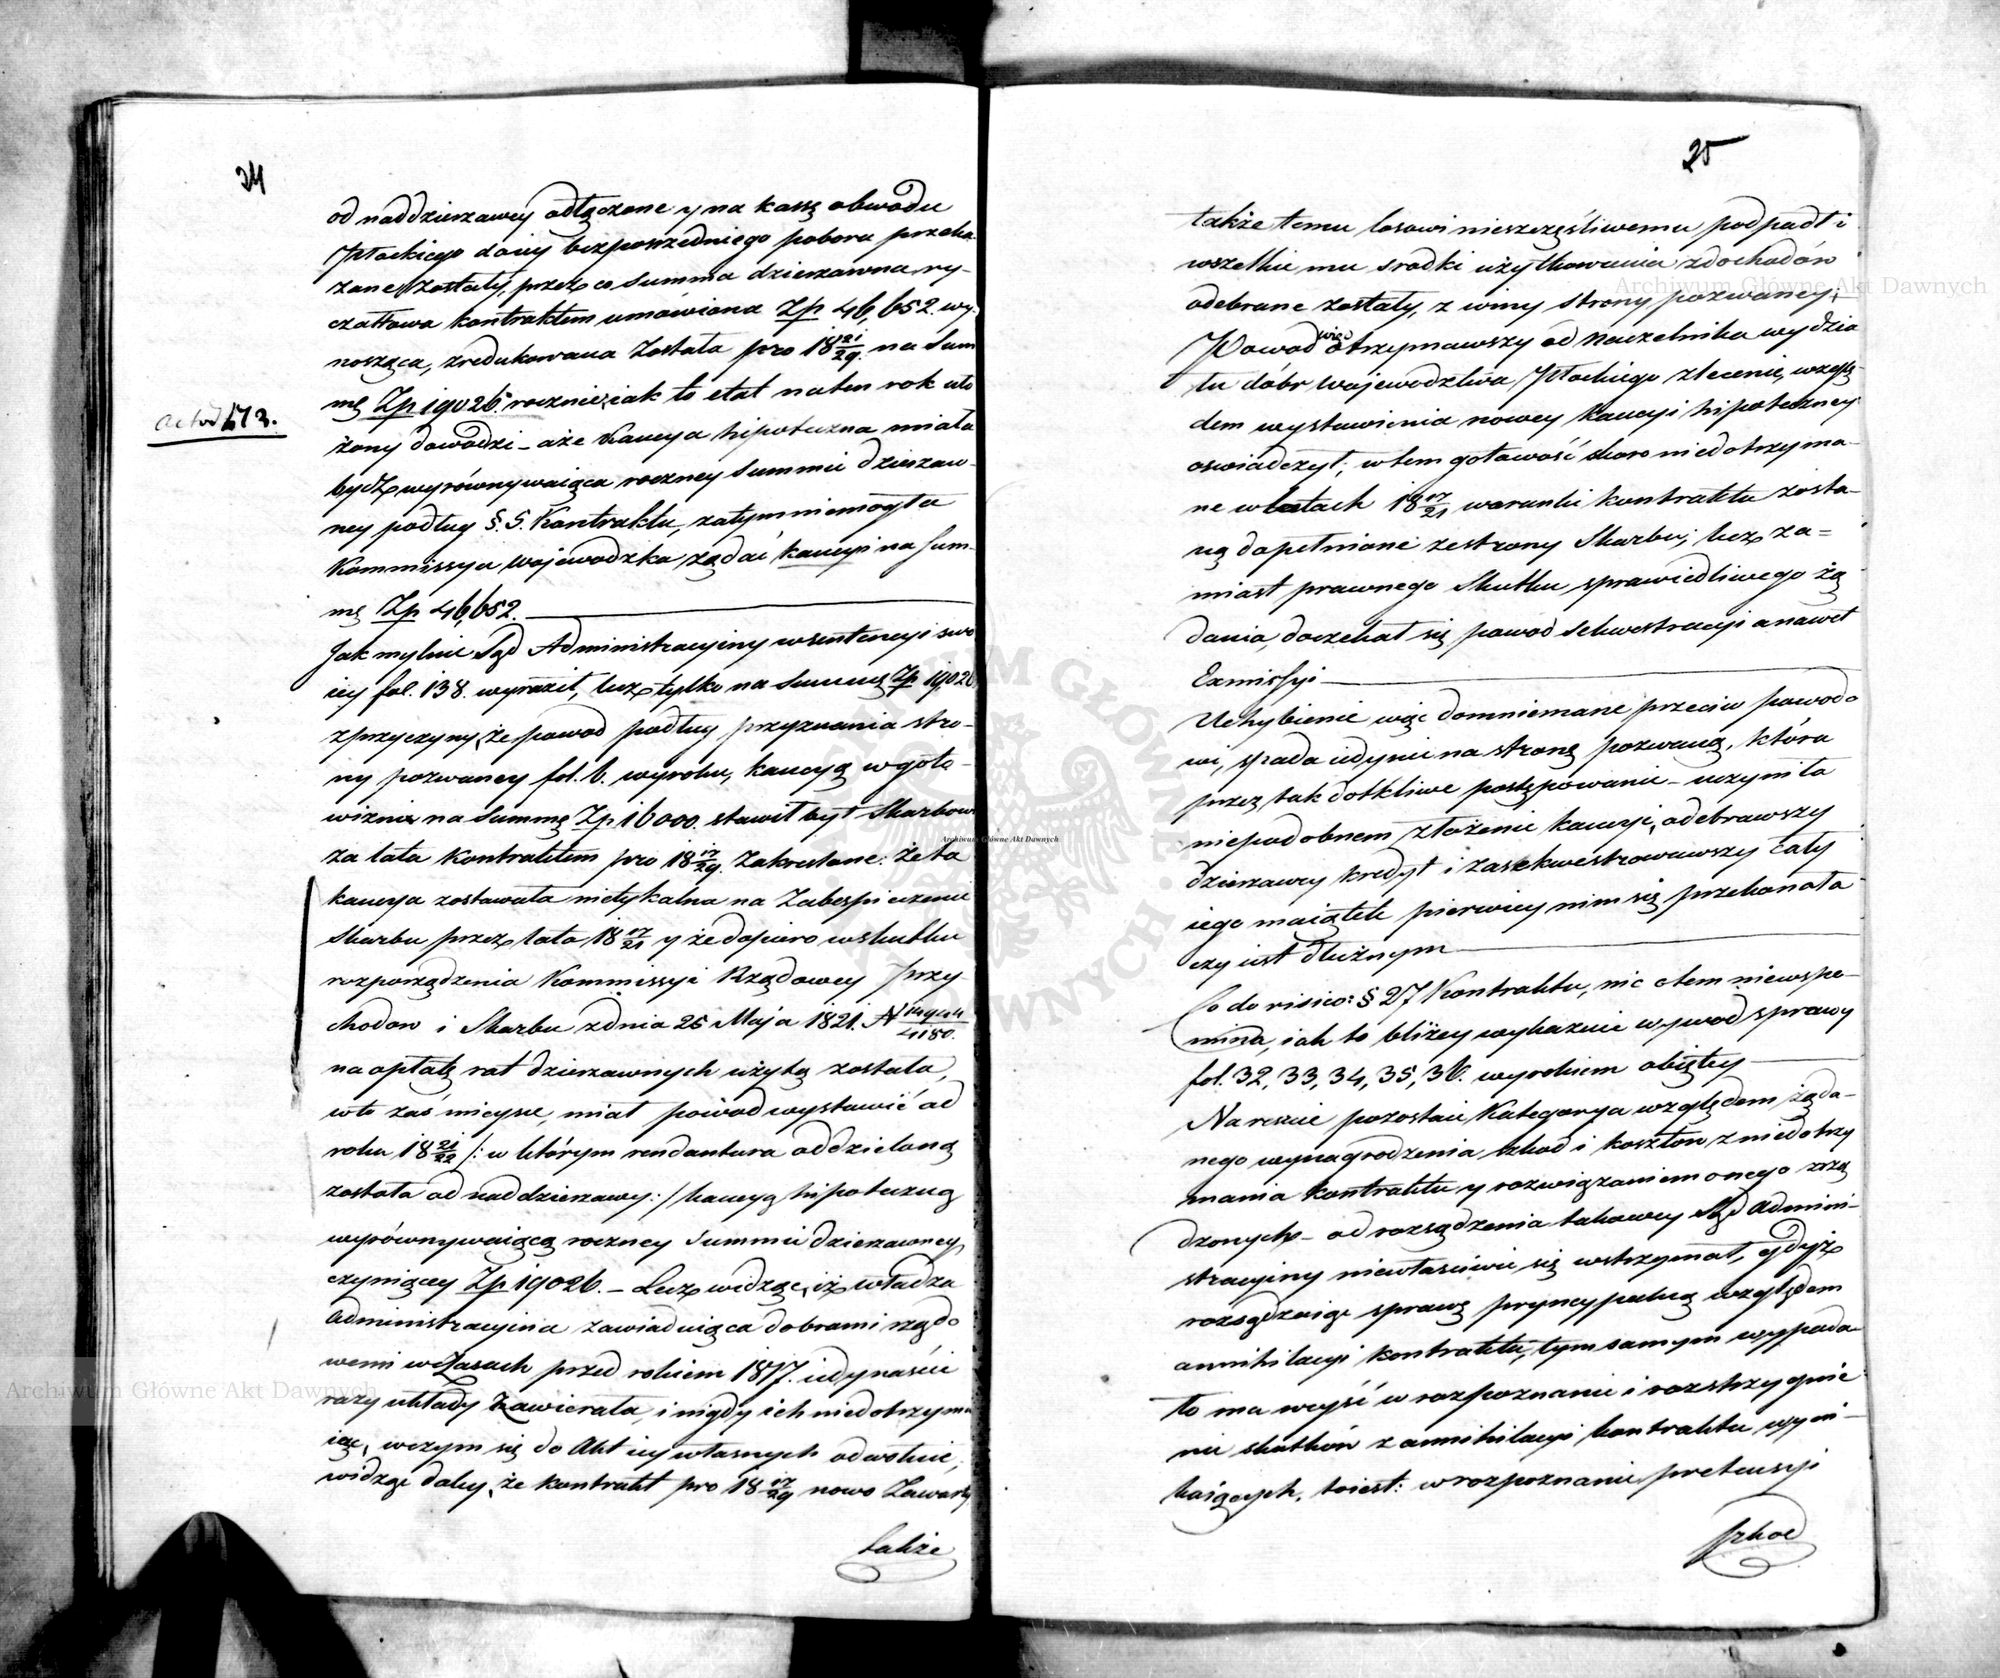 24
od naddzierzawcy odłączone y na kassę obwodu
Płockiego daniy bezposrzedniego poboru przeka
zane zostały, przez co summa dzierzawna ry-
czałtowa kontraktem umówiona Zp 46,652. wy-
nosząca, zredukowana została pro 18 21/29. na Sum
mę Zp 19026. rocznie, iak to etat na ten rok uło
Actow 173.
żony dowodzi – a że Kaucya hipoteczna miała
bydź wyrównywaiąca roczney Summie dzierzaw-
ney podług §. 5. Kontraktu, zatym niemogła
Kommissya Wojewodzka żądać kaucyi na Sum-
mę Zp 46,652.
Jak mylnie Sąd Administracyiny w sentencyi swo
iey fol. 138. wyraził, lecz tylko na Summę Zp 19,026
z przyczyny, że powod podług przyznania stro-
ny pozwaney fol. 6. wyroku, kaucyą w goto-
wiznie na Summę Zp 16000. stawił był Skarbow
za lata Kontraktem pro 18 17/29. Zakreslone: że ta
kaucya zostawała nietykalna na Zabespieczenie
Skarbu przez lata 18 17/21 y że dopiero w skutku
rozporządzenia Kommissyi Rządowey Przy-
chodow i Skarbu z dnia 26 Maja 1821. N /4180.
na opłatę rat dzierzawnych użytą została,
w to zaś mieysce, miał powod wystawić od
roku 18 21/22 /: w którym rendantura oddzieloną
została od naddzierzawy :/ kaucyą hipoteczną
wyrównywaiącą roczney Summie dzierzawney,
czyniącey Zp 19026. – Lecz widząc, iż władza
Administracyina zawiaduiąca dobrami rządo
wemi w Czasach przed rokiem 1817. iedynaście
razy układy Zawierała, i nigdy ich niedotrzyma
iąc, w czym się do Akt iey własnych odwołuie,
widząc daley, że kontrakt pro 18 17/29 nowo Zawarty
także
25
także temu losowi nieszczęśliwemu podpadł i
wszelkie mu srodki użytkowania z dochodów
odebrane zostały, z winy strony pozwaney;
Powod więc otrzymawszy od naczelnika wydzia
łu dóbr Województwa Płockiego zlecenie, wzglę-
dem wystawienia nowey kaucyi hipoteczney
oswiadczył; w tem gotowość skoro niedotrzyma-
ne w latach 18 17/21 warunki kontraktu zosta-
ną dopełnione ze strony Skarbu; lecz za=
miast prawnego Skutku, sprawiedliwego żą
dania, doczekał się powod Sekwestracyi a nawet
Exmissyi
Uchybienie więc domniemane przeciw powodo
wi, spada iedynie na stronę pozwaną, która
przez tak dotkliwe postępowanie – uczyniła
niepodobnem złożenie kaucyi, odebrawszy
dzierzawcy kredyt i zasekwestrowawszy cały
iego maiątek pierwiey nim się przekonała
czy iest dłużnym
Co do risico: § 27 Kontraktu, nic o tem niewspo-
mina, iak to bliżey wykazuie wywod sprawy
fol. 32, 33, 34, 35, 36. wyrokiem obiętey
Nareszcie pozostaie Kategorya względem żąda-
nego wynagrodzenia szkod i kosztów z niedotrzy
mania kontraktu y rozwiązaniem onego zrzą
dzonych – od rozsądzenia takowey Sąd Admini-
stracyiny niewłasciwie się wstrzymał, gdyż
rozsądzaiąc sprawę pryncypalną względem
annihilacyi kontraktu, tym samym wypada-
ło mu weyść w rozpoznanie i rozstrzygnie
nie skutków z annihilacyi kontraktu wyni-
kaiących, to iest: w rozpoznanie pretensyi
szkod